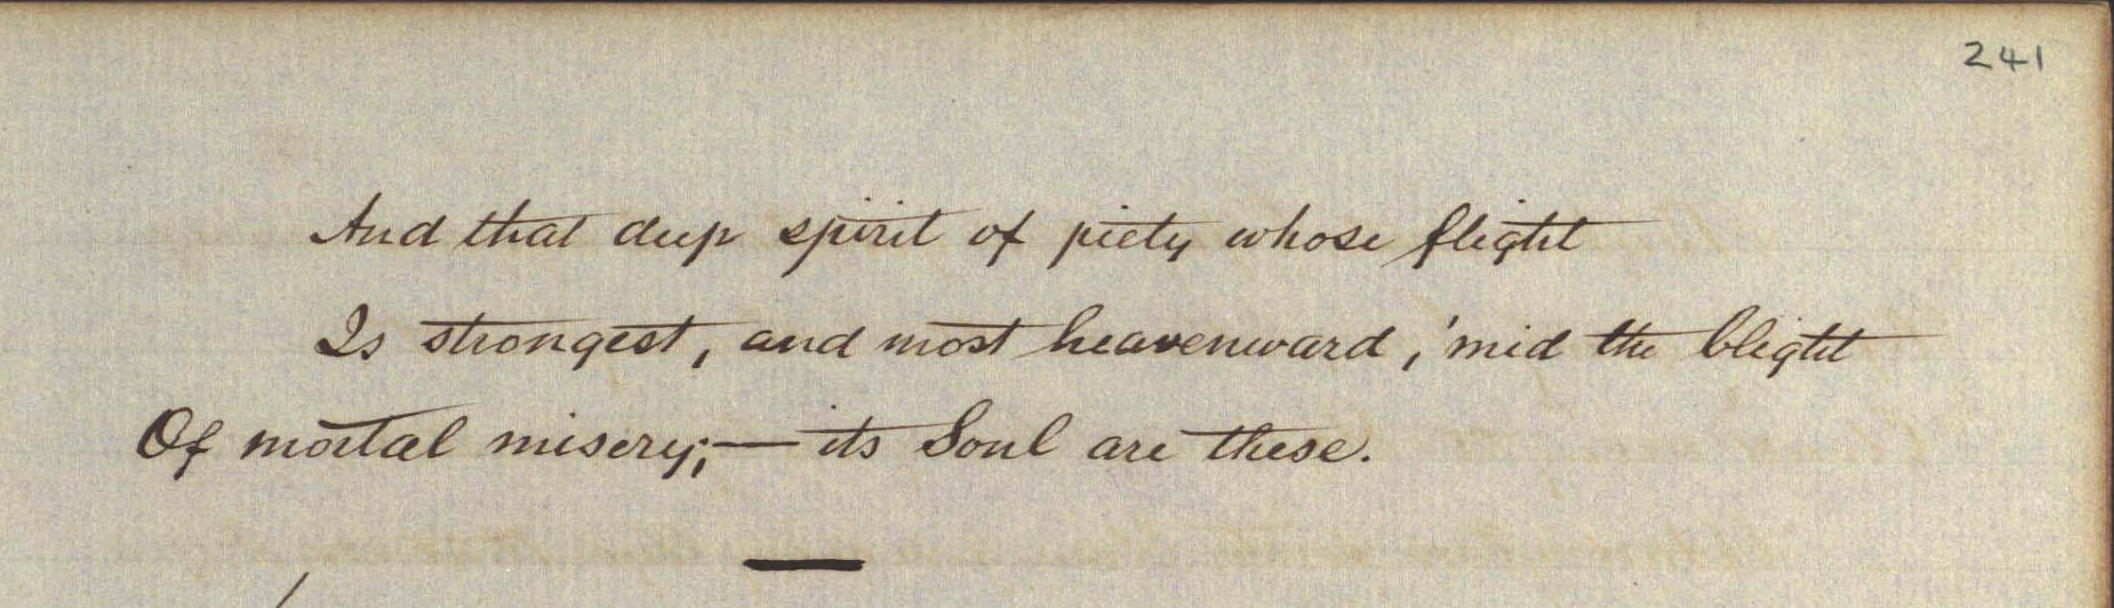 241
And that deep spirit of piety whose flight
Is strongest, and most heavenward, 'mid the blight
Of mortal misery;— its Soul are these.